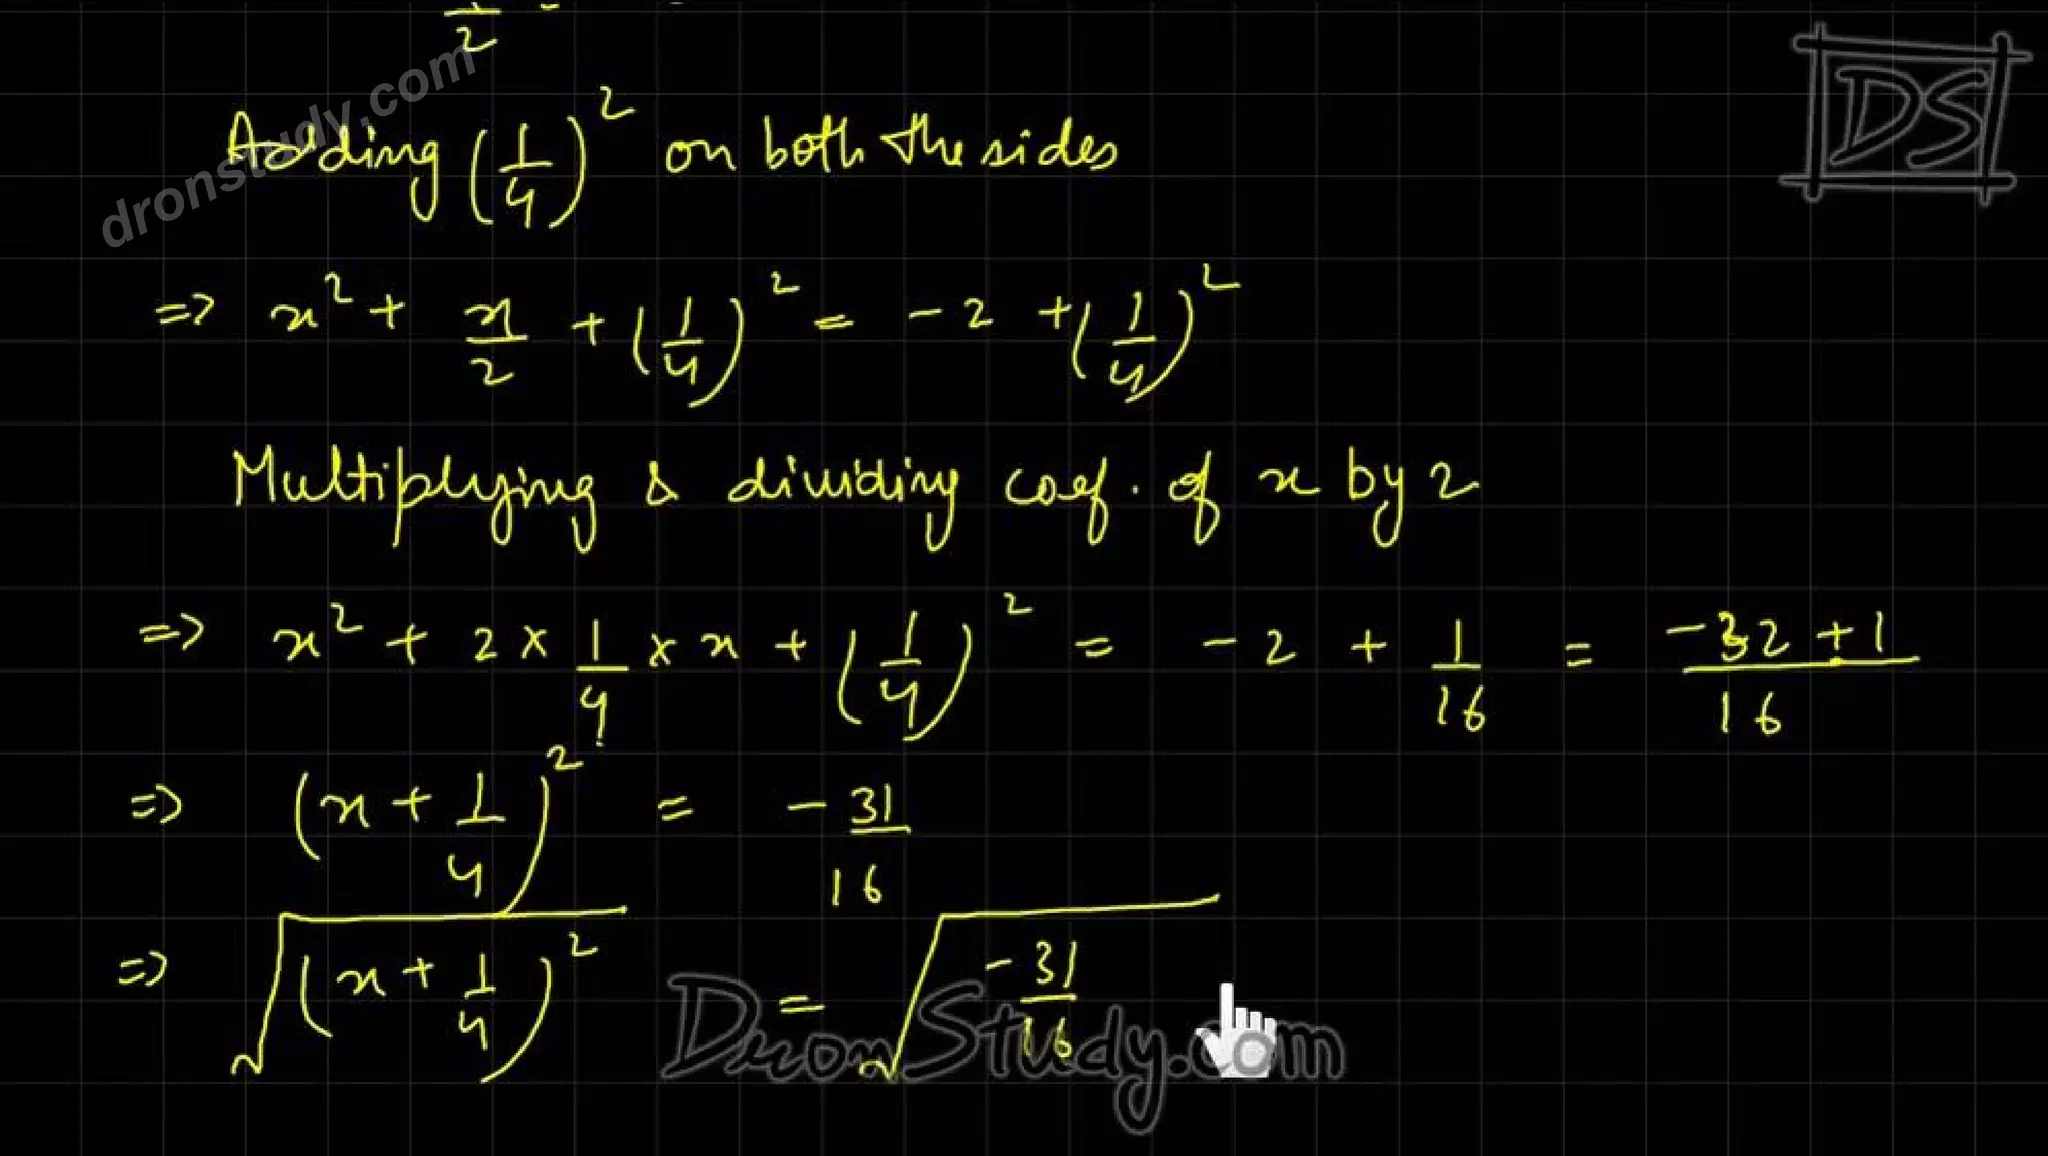 2
DS
dronstudy.com
Adding (1/4)² on both the sides
=> x² + x/2 + (1/4)² = -2 + (1/4)²
Multiplying & dividing coef. of x by 2
=> x² + 2 × 1/4 × x + (1/4)² = -2 + 1/16 = -32+1/16
=> (x + 1/4)² = -31/16
=> √(x + 1/4)² = √-31/16
DronStudy.com